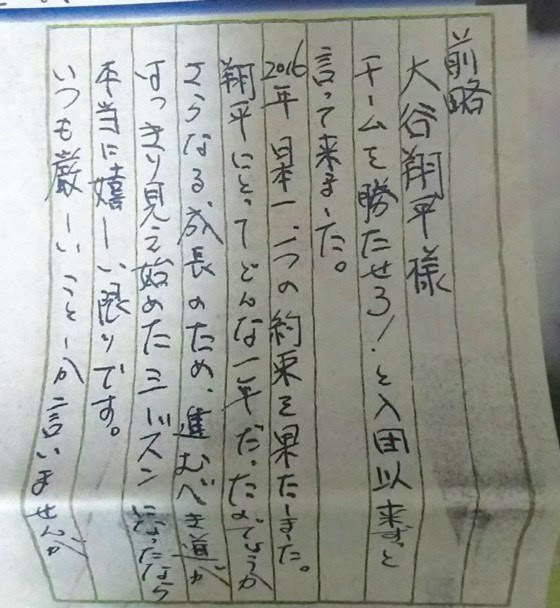 前略
大谷翔平様
チームを勝たせろ！と入団以来ずっと
言って来ました。
2016年日本一、一つの約束を果たしました。
翔平にとってどんな一年だったのでしょうか
さらなる、成長のため、進むべき道が
はっきり見え始めたシーズンになったなら
本当に嬉しい限りです。
いつも厳しいことしか言いませんが